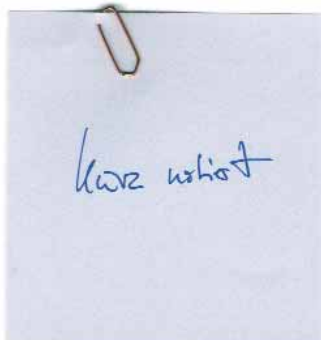 kurz notiert